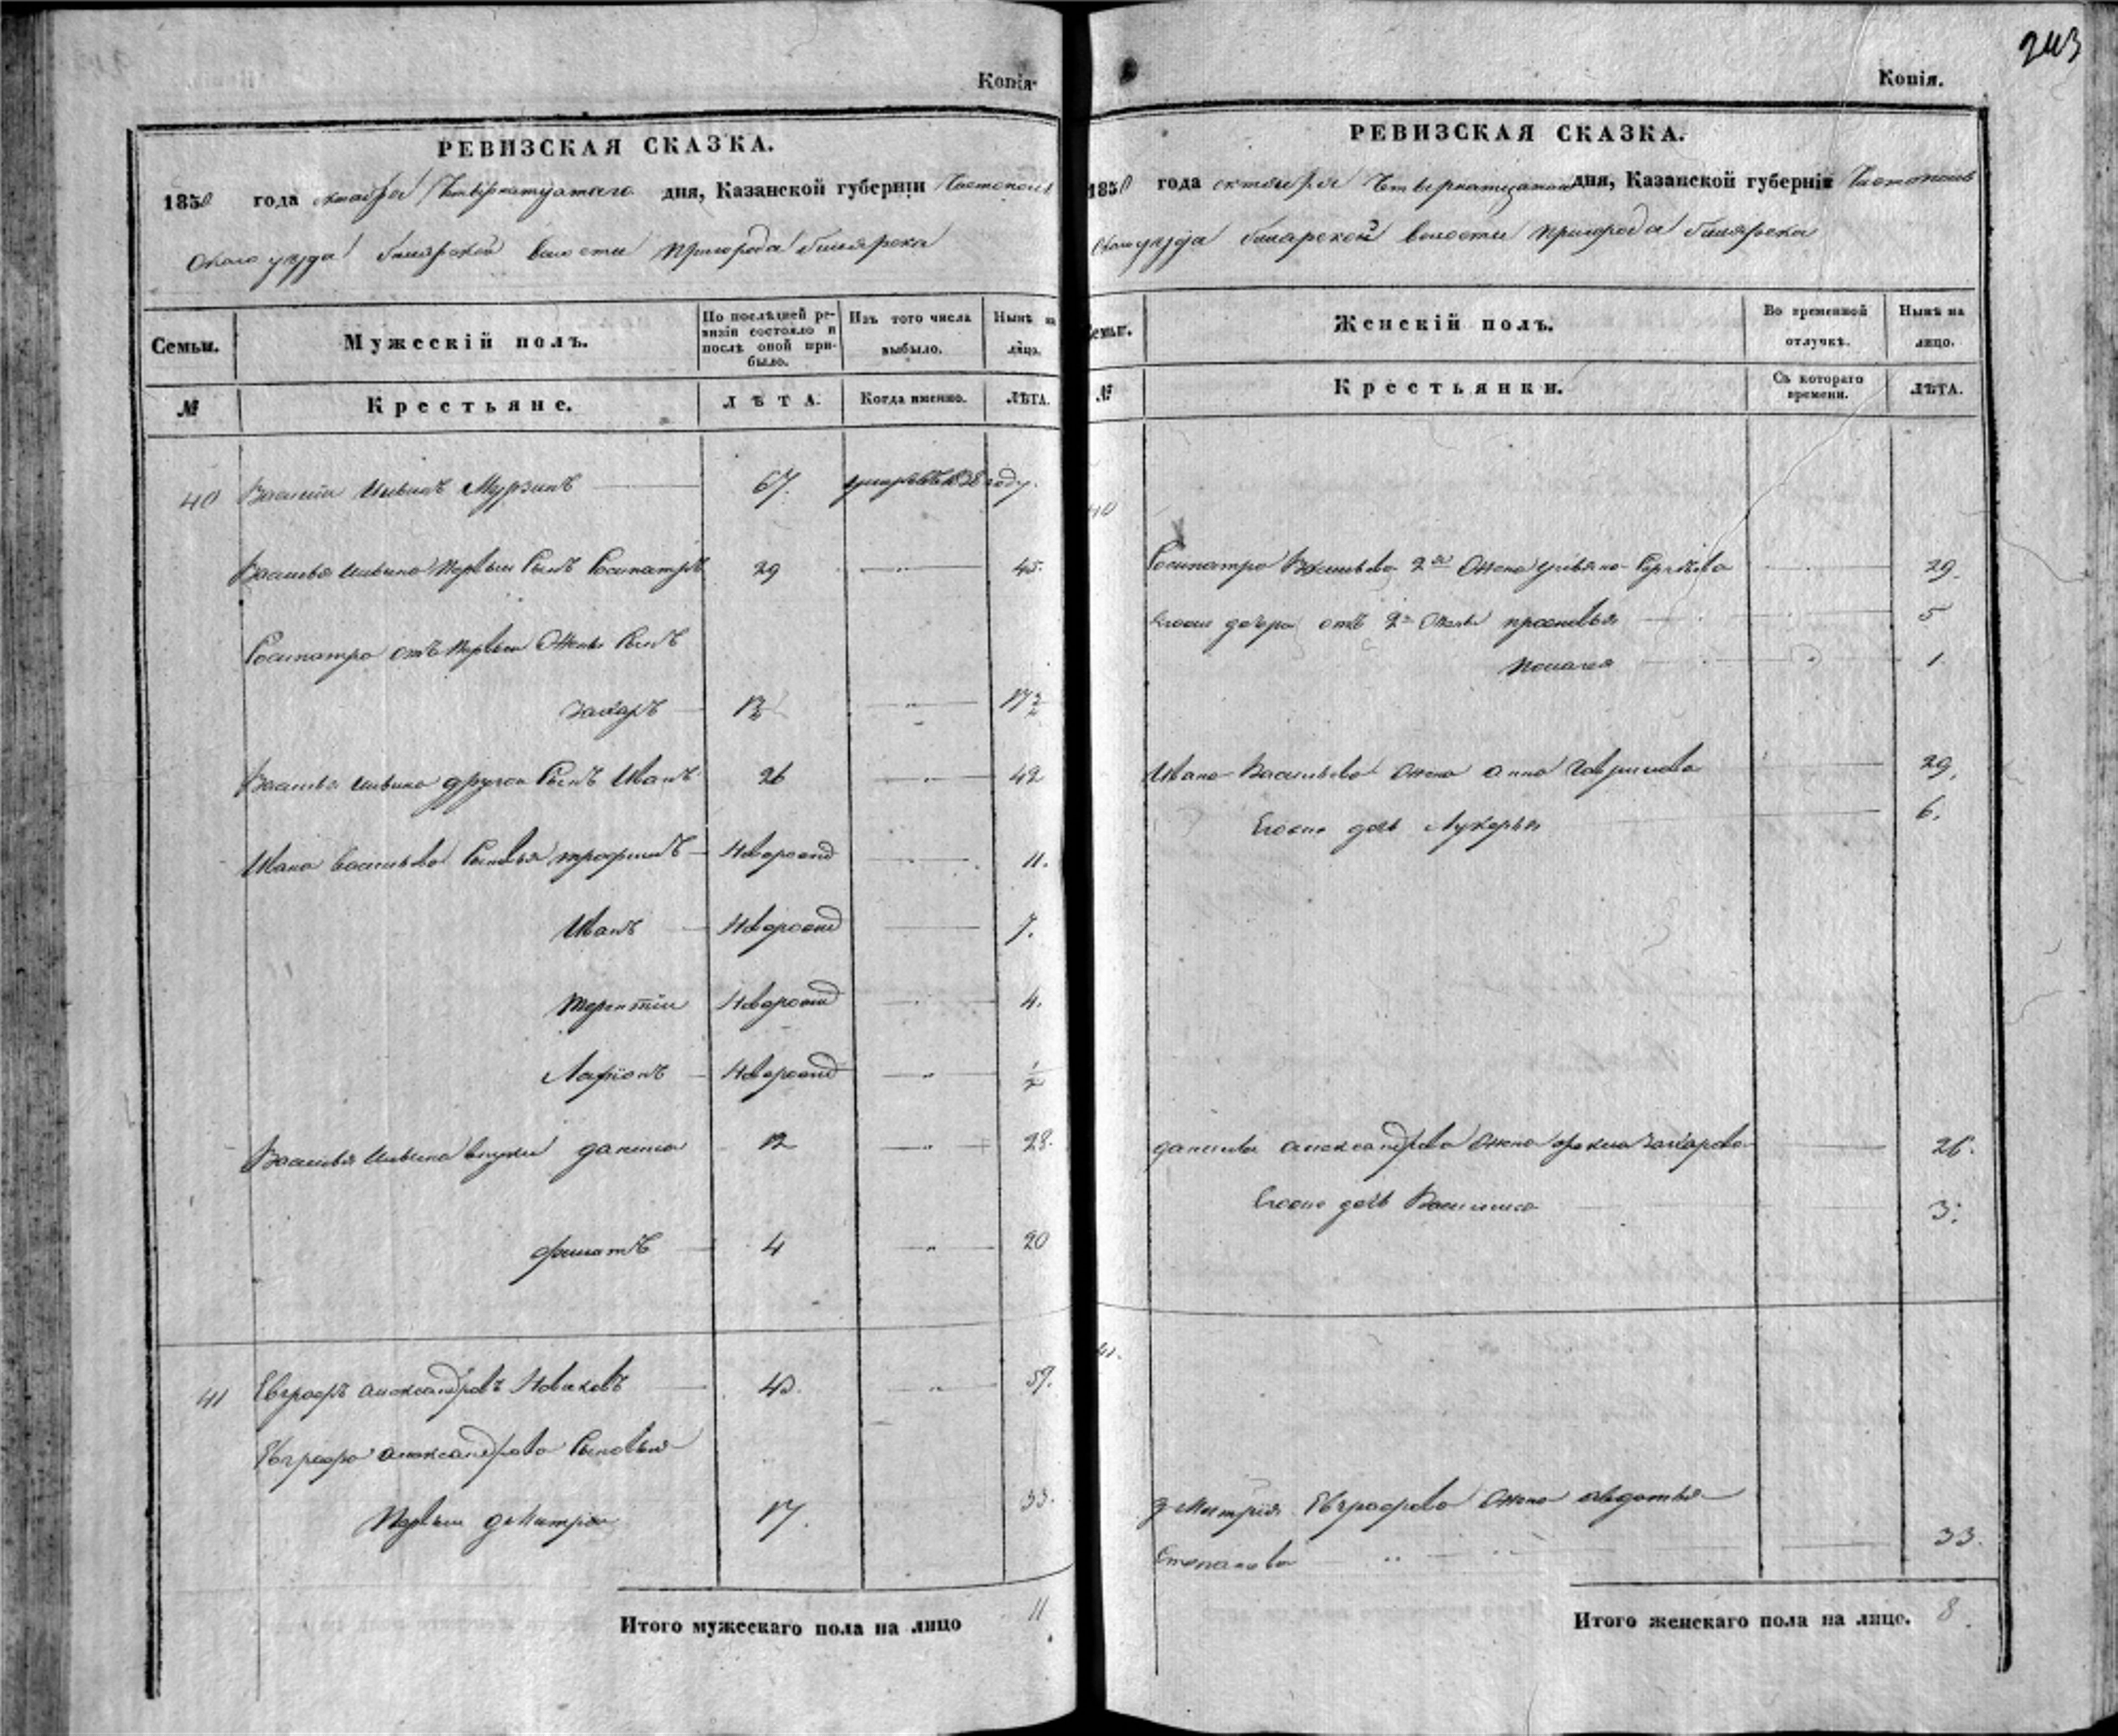 Копія
РЕВИЗСКАЯ СКАЗКА.
1850 года октября Четвертнатцатаго дня, Казанской губерніи Чистополь
скаго уезда билярской волости пригорода билярска
Семьи. Мужескій полъ. По послѣдней ревизіи состояло и послѣ оной прибыло. Изъ того числа выбыло. Нынѣ на лицо.
№ Крестьяне. ЛѢТА. Когда именно. ЛѢТА.
40 Василіи Ильинъ Мурзинъ 67. умеръ въ 1838 году.
Василья Ильина Первыи Сынъ Сосипатръ 29 45.
Сосипатра отъ Первыи Жены Сынъ
Захаръ 17
Василья Ильина другои Сынъ Иванъ 26 42
Ивана Васильева Сыновья трофимъ Новорожд 11.
Иванъ Новорожд 7.
терентіи Новорожд 4.
Ларіонъ Новорожд 1/2
Василья Ильина внуки данила 12 28.
филатъ 4 20
41 Евграфъ александровъ Новиковъ 43. 59.
Евграфа александрова Сыновья
Первыи дмитреи 17. 33.
Итого мужескаго пола на лицо 11
243
Копія.
РЕВИЗСКАЯ СКАЗКА.
1850 года октября Четвертнатцатаго дня, Казанской губерніи Чистополь
скаго уезда билярской волости пригорода билярска
Семьи. Женскій полъ. Во временной отлучкѣ. Нынѣ на лицо.
№ Крестьянки. Съ котораго времени. ЛѢТА.
40
Сосипатра Васильева 2я Жена ульяна Сергѣева 29.
Егоже дочери отъ 2й Жены прасковья 5
Пелагея 1
Ивана Васильева Жена анна Гаврилова 29.
Егоже дочь Лукерья 6.
данилы александрова Жена фекла Захарова 26.
Егоже дочь Василиса 3.
41.
дмитрія Евграфова Жена авдотья
Степанова 33.
Итого женскаго пола на лицо. 8.